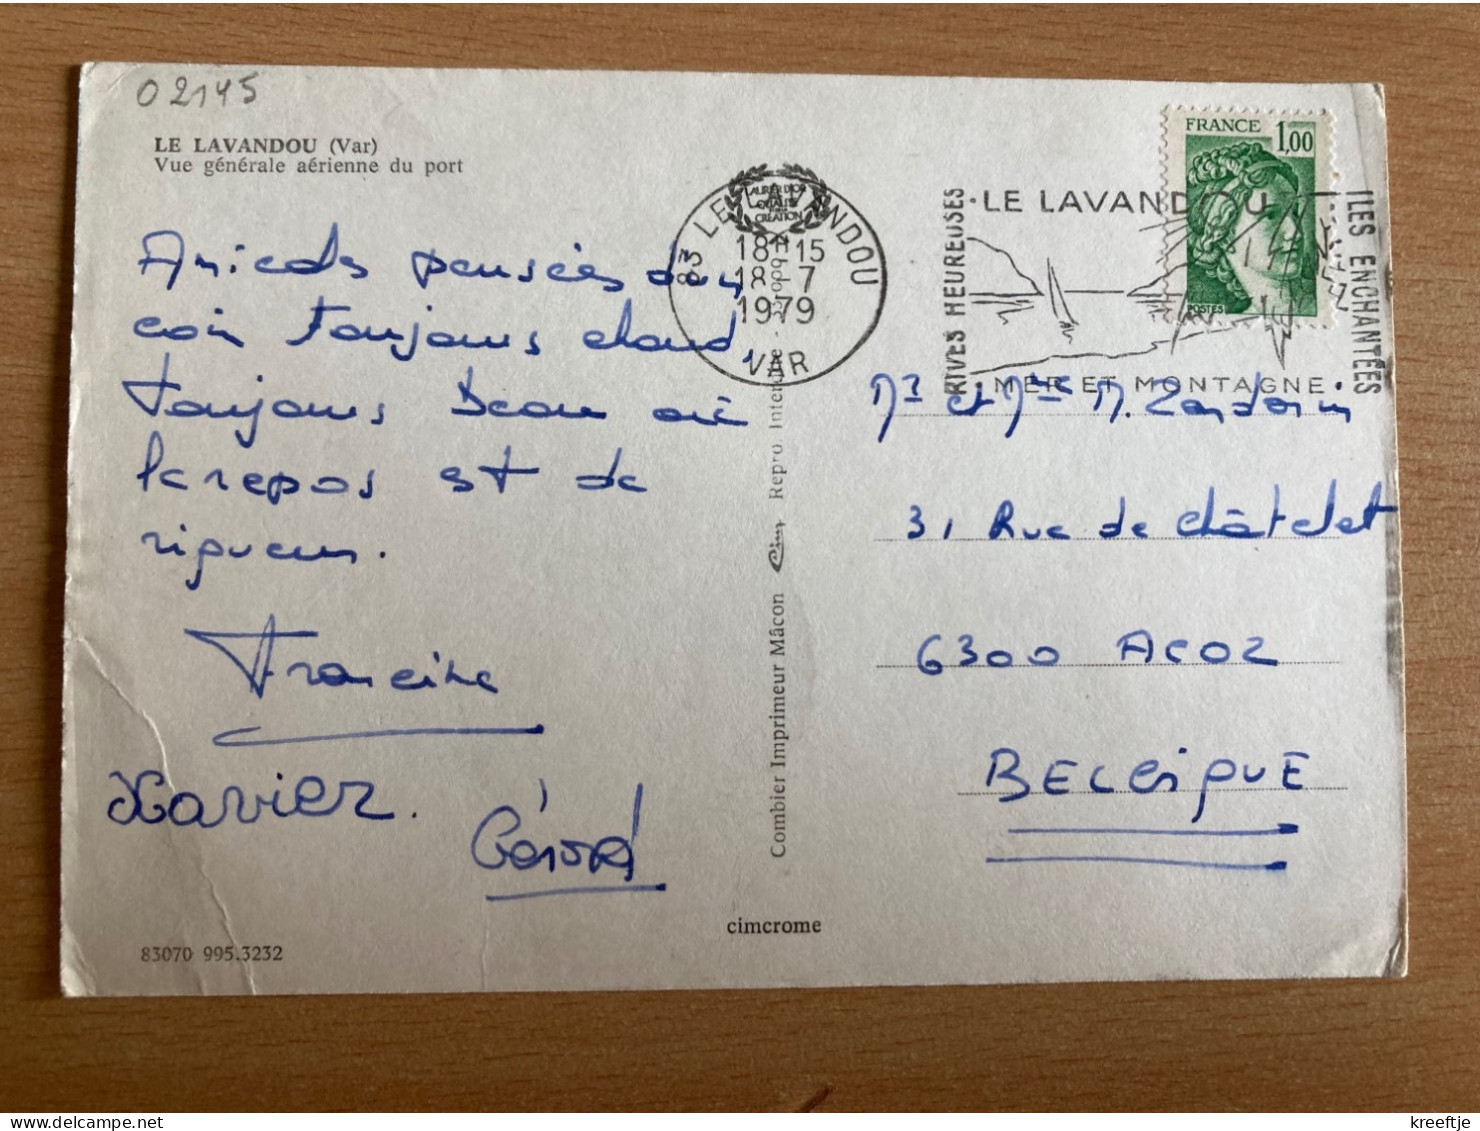 02145
LE LAVANDOU (Var)
Vue générale aérienne du port
Amicales pensées d'un
coin toujours chaud,
toujours beau où
le repos est de
rigueur.
Francine
Xavier.
Gérard
83070 995.3232
cimcrome
Combier Imprimeur Mâcon Cim Repro
LAURIER D'OR
QUALITÉ
CRÉATION
83 LE LAVANDOU
18H15
18-7
1979
VAR
RIVES HEUREUSES
LE LAVANDOU
MER ET MONTAGNE
ILES ENCHANTÉES
FRANCE 1,00
POSTES
Mr et Mme M.
31 Rue de Châtelet
6300 ACOZ
BELGIQUE
kreeftje